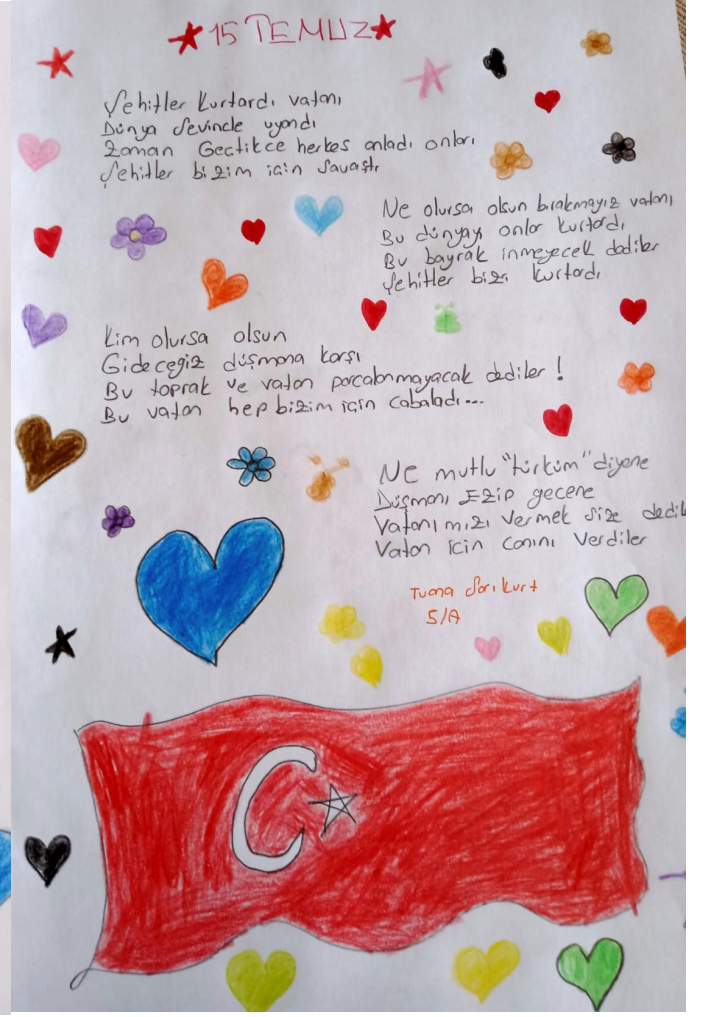 15 TEMUZ
Şehitler kurtardı vatanı
Dünya Sevincle uyandı
Zaman Gectikce herkes anladı onları
Şehitler bizim için Savaştı
Ne olursa olsun bırakmayız vatanı
Bu dünyayı onlar kurtardı
Bu bayrak inmeyecek dediler
Şehitler bizi kurtardı
Kim olursa olsun
Gideceğiz düşmana karşı
Bu toprak ve vatan parcalanmayacak dediler !
Bu vatan hep bizim için cabaladı...
Ne mutlu "türküm" diyene
Düşmanı Ezip gecene
Vatanımızı vermek size dedil
Vatan icin canını verdiler
Tuana Sarıkurt
5/A